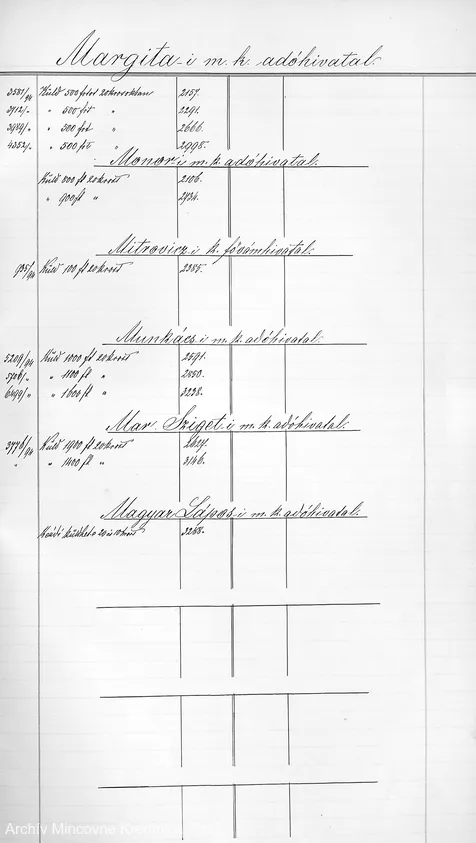 Margita-i m. k. adóhivatal.
3581/94 Küld 500 frtot 20krosokban 2157.
3912/" " 500 frt " 2291.
3989/" " 300 frt " 2666.
4352/" " 500 frt " 2998.
Monor-i m. k. adóhivatal.
Küld 800 ft 20krost 2106.
" 900 ft " 2934.
Mitrovicz-i k. fővámhivatal.
935/94 Küld 100 ft 20krost 2385.
Munkács-i m. k. adóhivatal.
5209/94 Küld 1000 ft 20krost 2591.
5706/" " 1100 ft " 2850.
6499/" " 1600 ft " 3238.
Mar. Sziget-i m. k. adóhivatal.
3776/94 Küld 1900 ft 20krost 2627.
" " 1400 ft " 3146.
Magyar Lápos-i m. k. adóhivatal.
20 és 10 krost 3248.
Archív Mincovne Kremnica